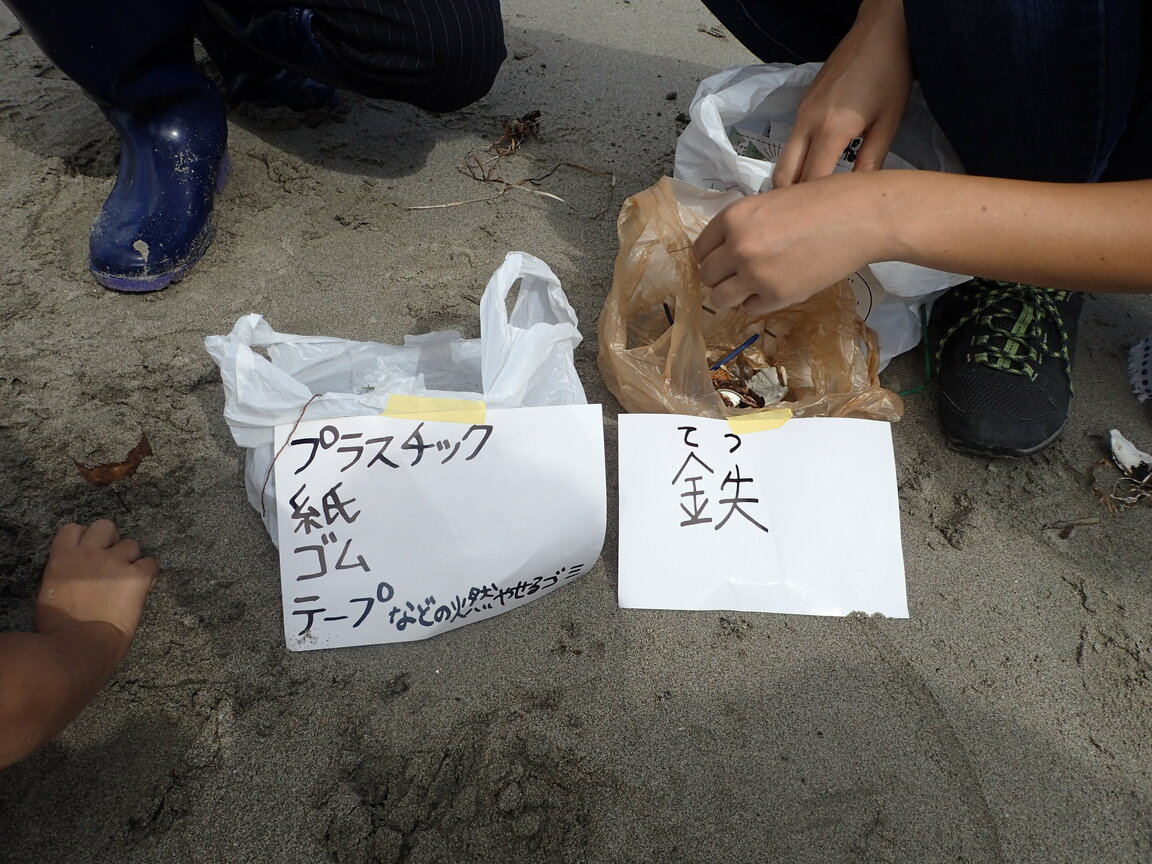 プラスチック
紙
ゴム
テープなどの燃やせるゴミ
てつ
鉄